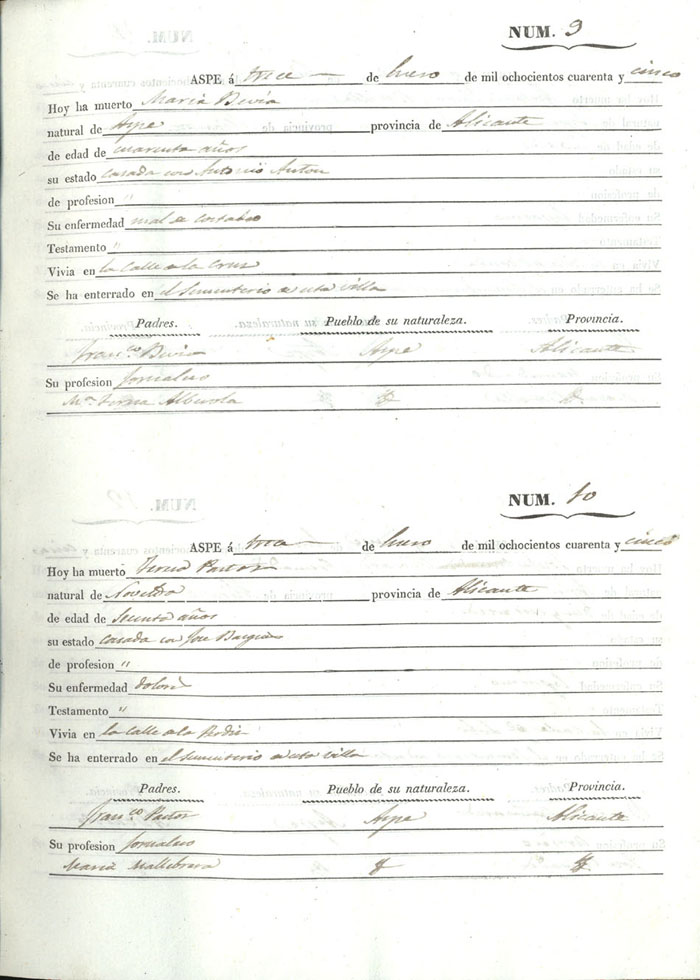 NUM. 9
ASPE á trece de Enero de mil ochocientos cuarenta y cinco
Hoy ha muerto Maria Bevia
natural de Aspe provincia de Alicante
de edad de cuarenta años
su estado casada con Antonio Anton
de profesion "
Su enfermedad mal de costado
Testamento "
Vivia en la calle de la Cruz
Se ha enterrado en el sementerio de esta villa
Padres. Pueblo de su naturaleza. Provincia.
Franco. Bevia Aspe Alicante
Su profesion Jornalero
Ma. Alberola
NUM. 10
ASPE á trece de Enero de mil ochocientos cuarenta y cinco
Hoy ha muerto Teresa Pastor
natural de Novelda provincia de Alicante
de edad de años
su estado casada con Jose
de profesion "
Su enfermedad dolores
Testamento "
Vivia en la calle de la
Se ha enterrado en el sementerio de esta villa
Padres. Pueblo de su naturaleza. Provincia.
Franco. Pastor Aspe Alicante
Su profesion Jornalero
Maria